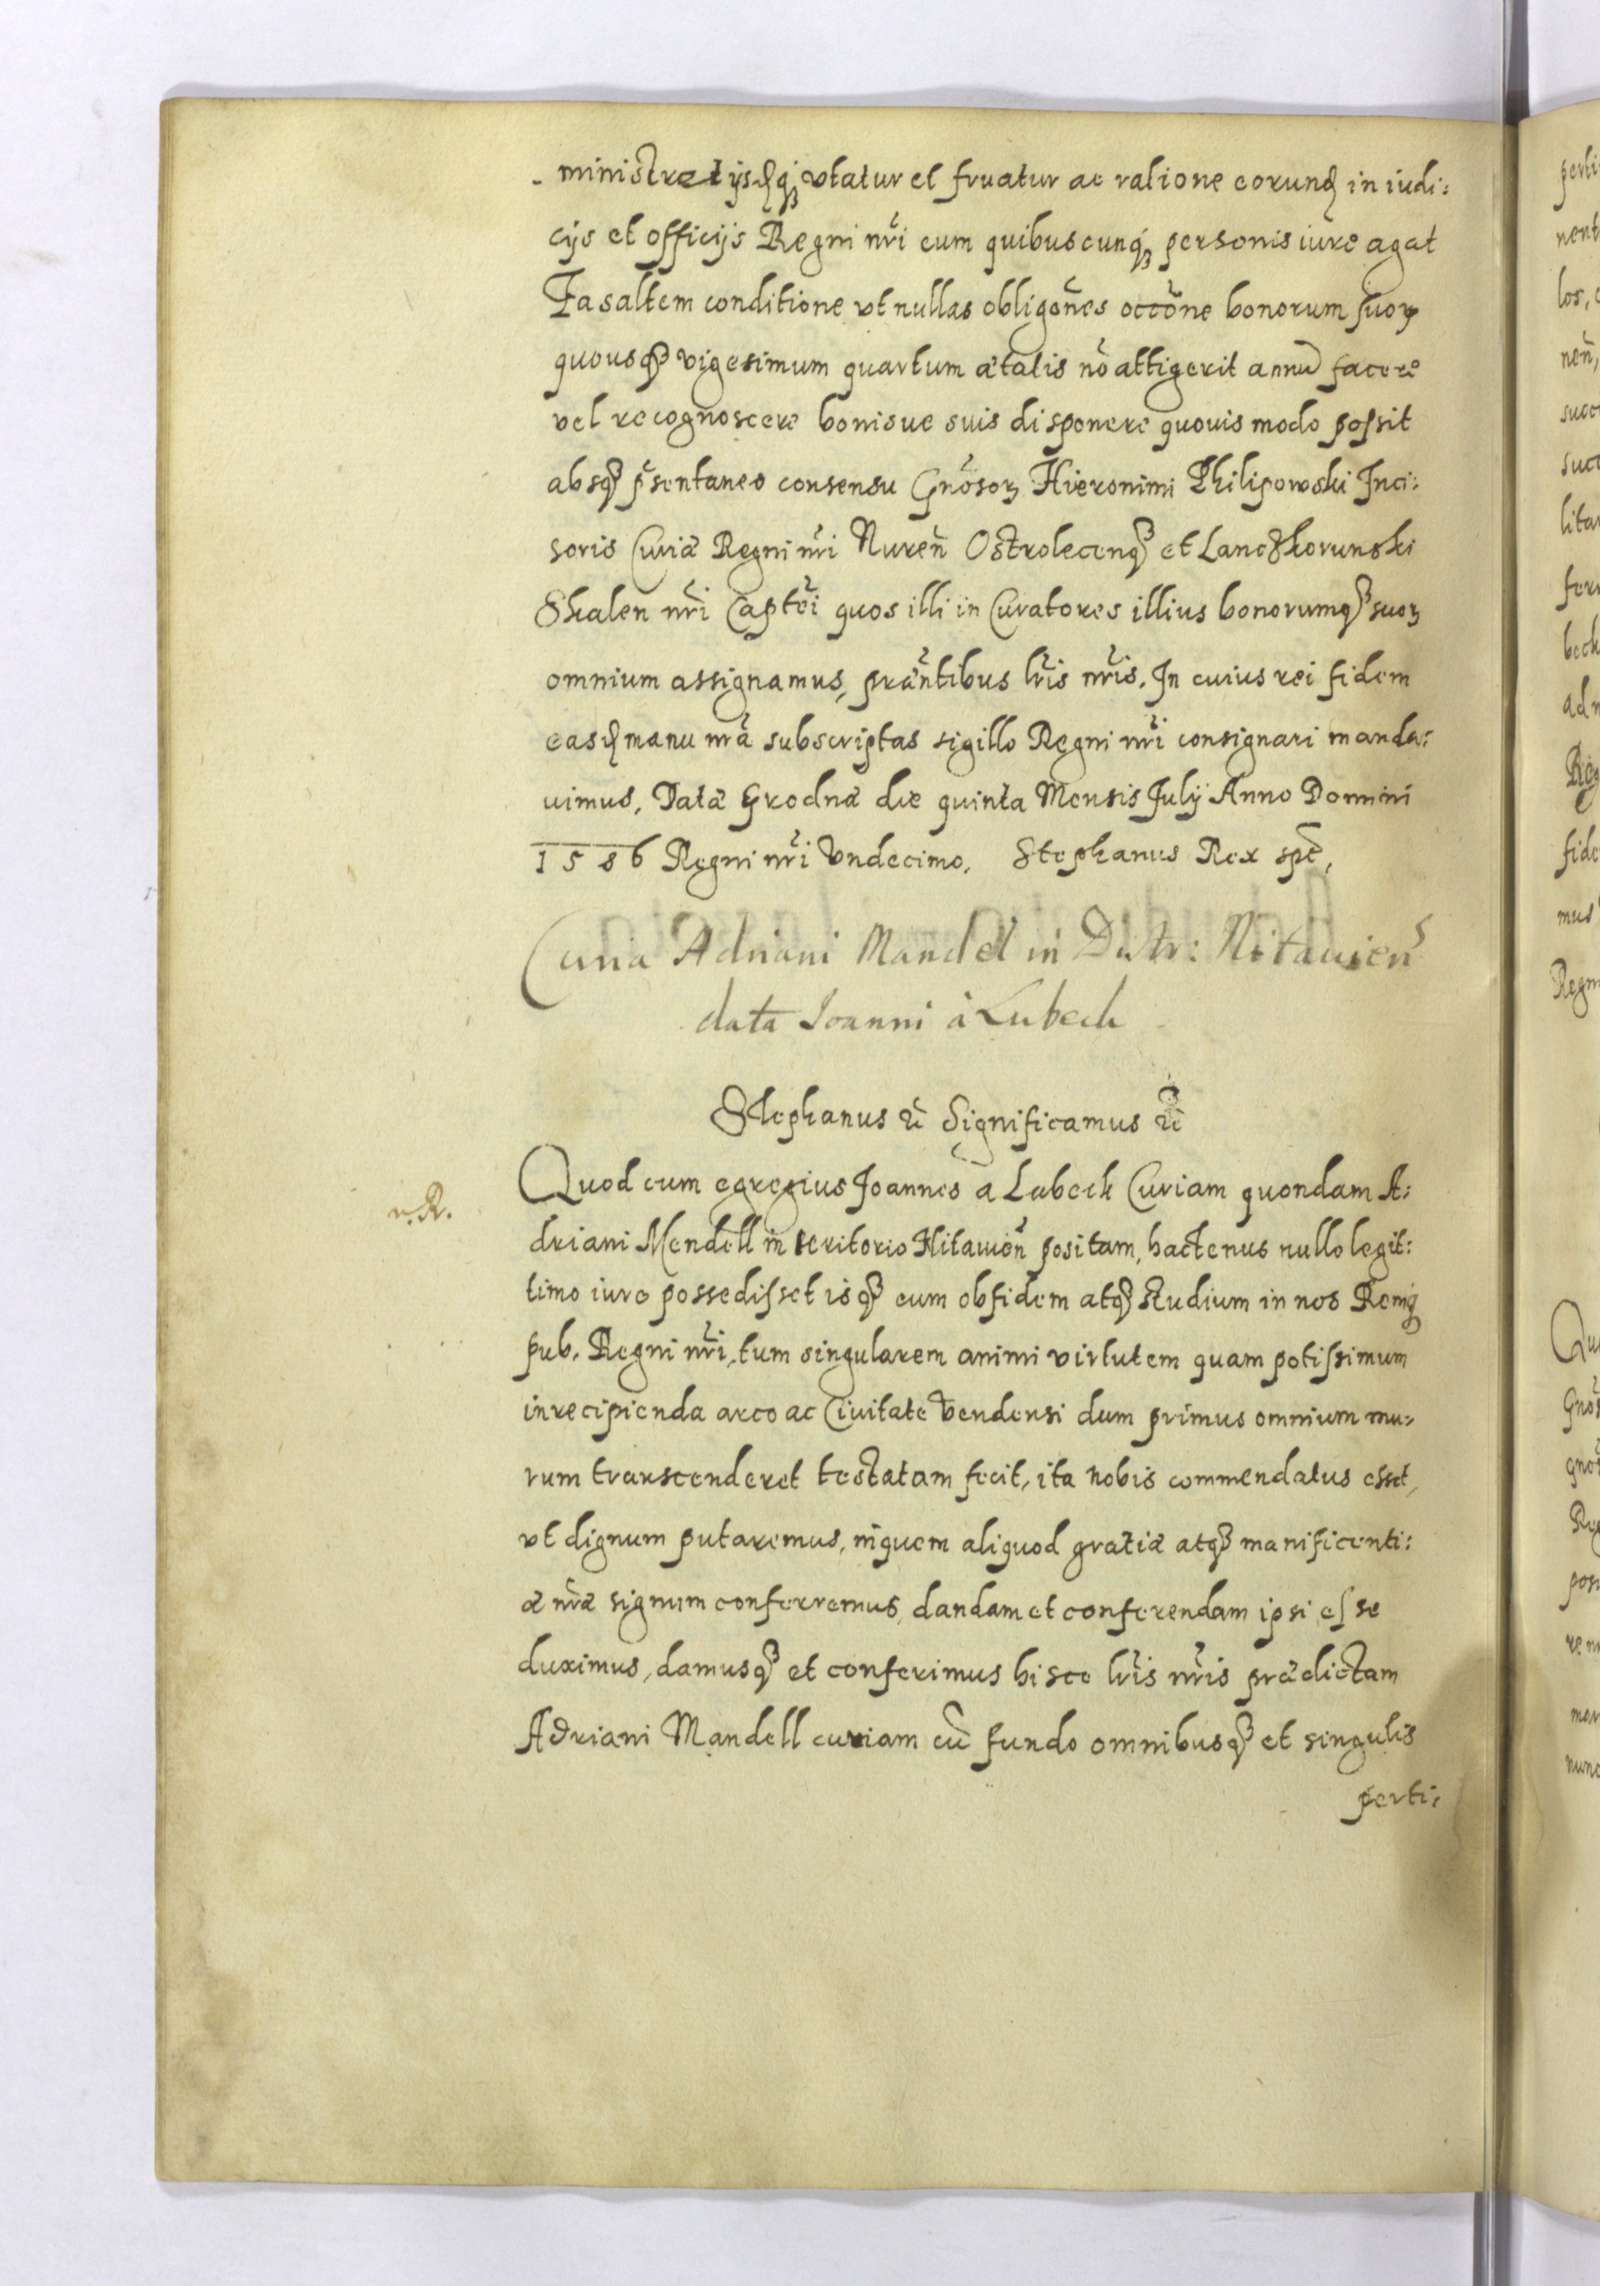 ministret ijsdq3 vtatur et fruatur ac ratione eorund in iudi:
cijs et officijs Regni nri cum quibuscunq3 personis iure agat
Ea saltem conditione vt nullas obligones occone bonorum suor
quousq3 vigesimum quartum ætatis no attigerit annu facere
vel recognoscere bonisue suis disponere quouis modo possit
absq3 psentaneo consensu Gnosor Hieronimi Philipowski Inci:
soris Curiæ Regni nri Nuren Ostrolecenq3 et Lanczkorunski
Skalen nri Captei quos illi in Curatores illius bonorumq3 suor
omnium assignamus, præntibus lris nris. In cuius rei fidem
easd manu nra subscriptas sigillo Regni nri consignari manda:
uimus. Datæ Grodnæ die quinta Mensis July Anno Domini
1586 Regni nri Vndecimo. Stephanus Rex spt.
Curia Adriani Mandel in Distr: Nitauien
data Joanni à Lubech
Stephanus &c Significamus &c
Quod cum egregius Joannes a Lubeck Curiam quondam A:
v. R.
driani Mendell in teritorio Nitauien positam, hactenus nullo legit:
timo iure possedisset isq3 cum ob fidem atq3 studium in nos Remq
pub. Regni nri, tum singularem animi virtutem quam potissimum
in recipienda arce ac Ciuitate Vendensi dum primus omnium mu:
rum transcenderet testatam fecit, ita nobis commendatus esset,
vt dignum putaremus, in quem aliquod gratiæ atq3 manificenti:
æ nræ signum conferremus, dandam et conferendam ipsi esse
duximus, damusq3 et conferimus hisce lris nris prædictam
Adriani Mandell curiam cu fundo omnibusq3 et singulis
perti: